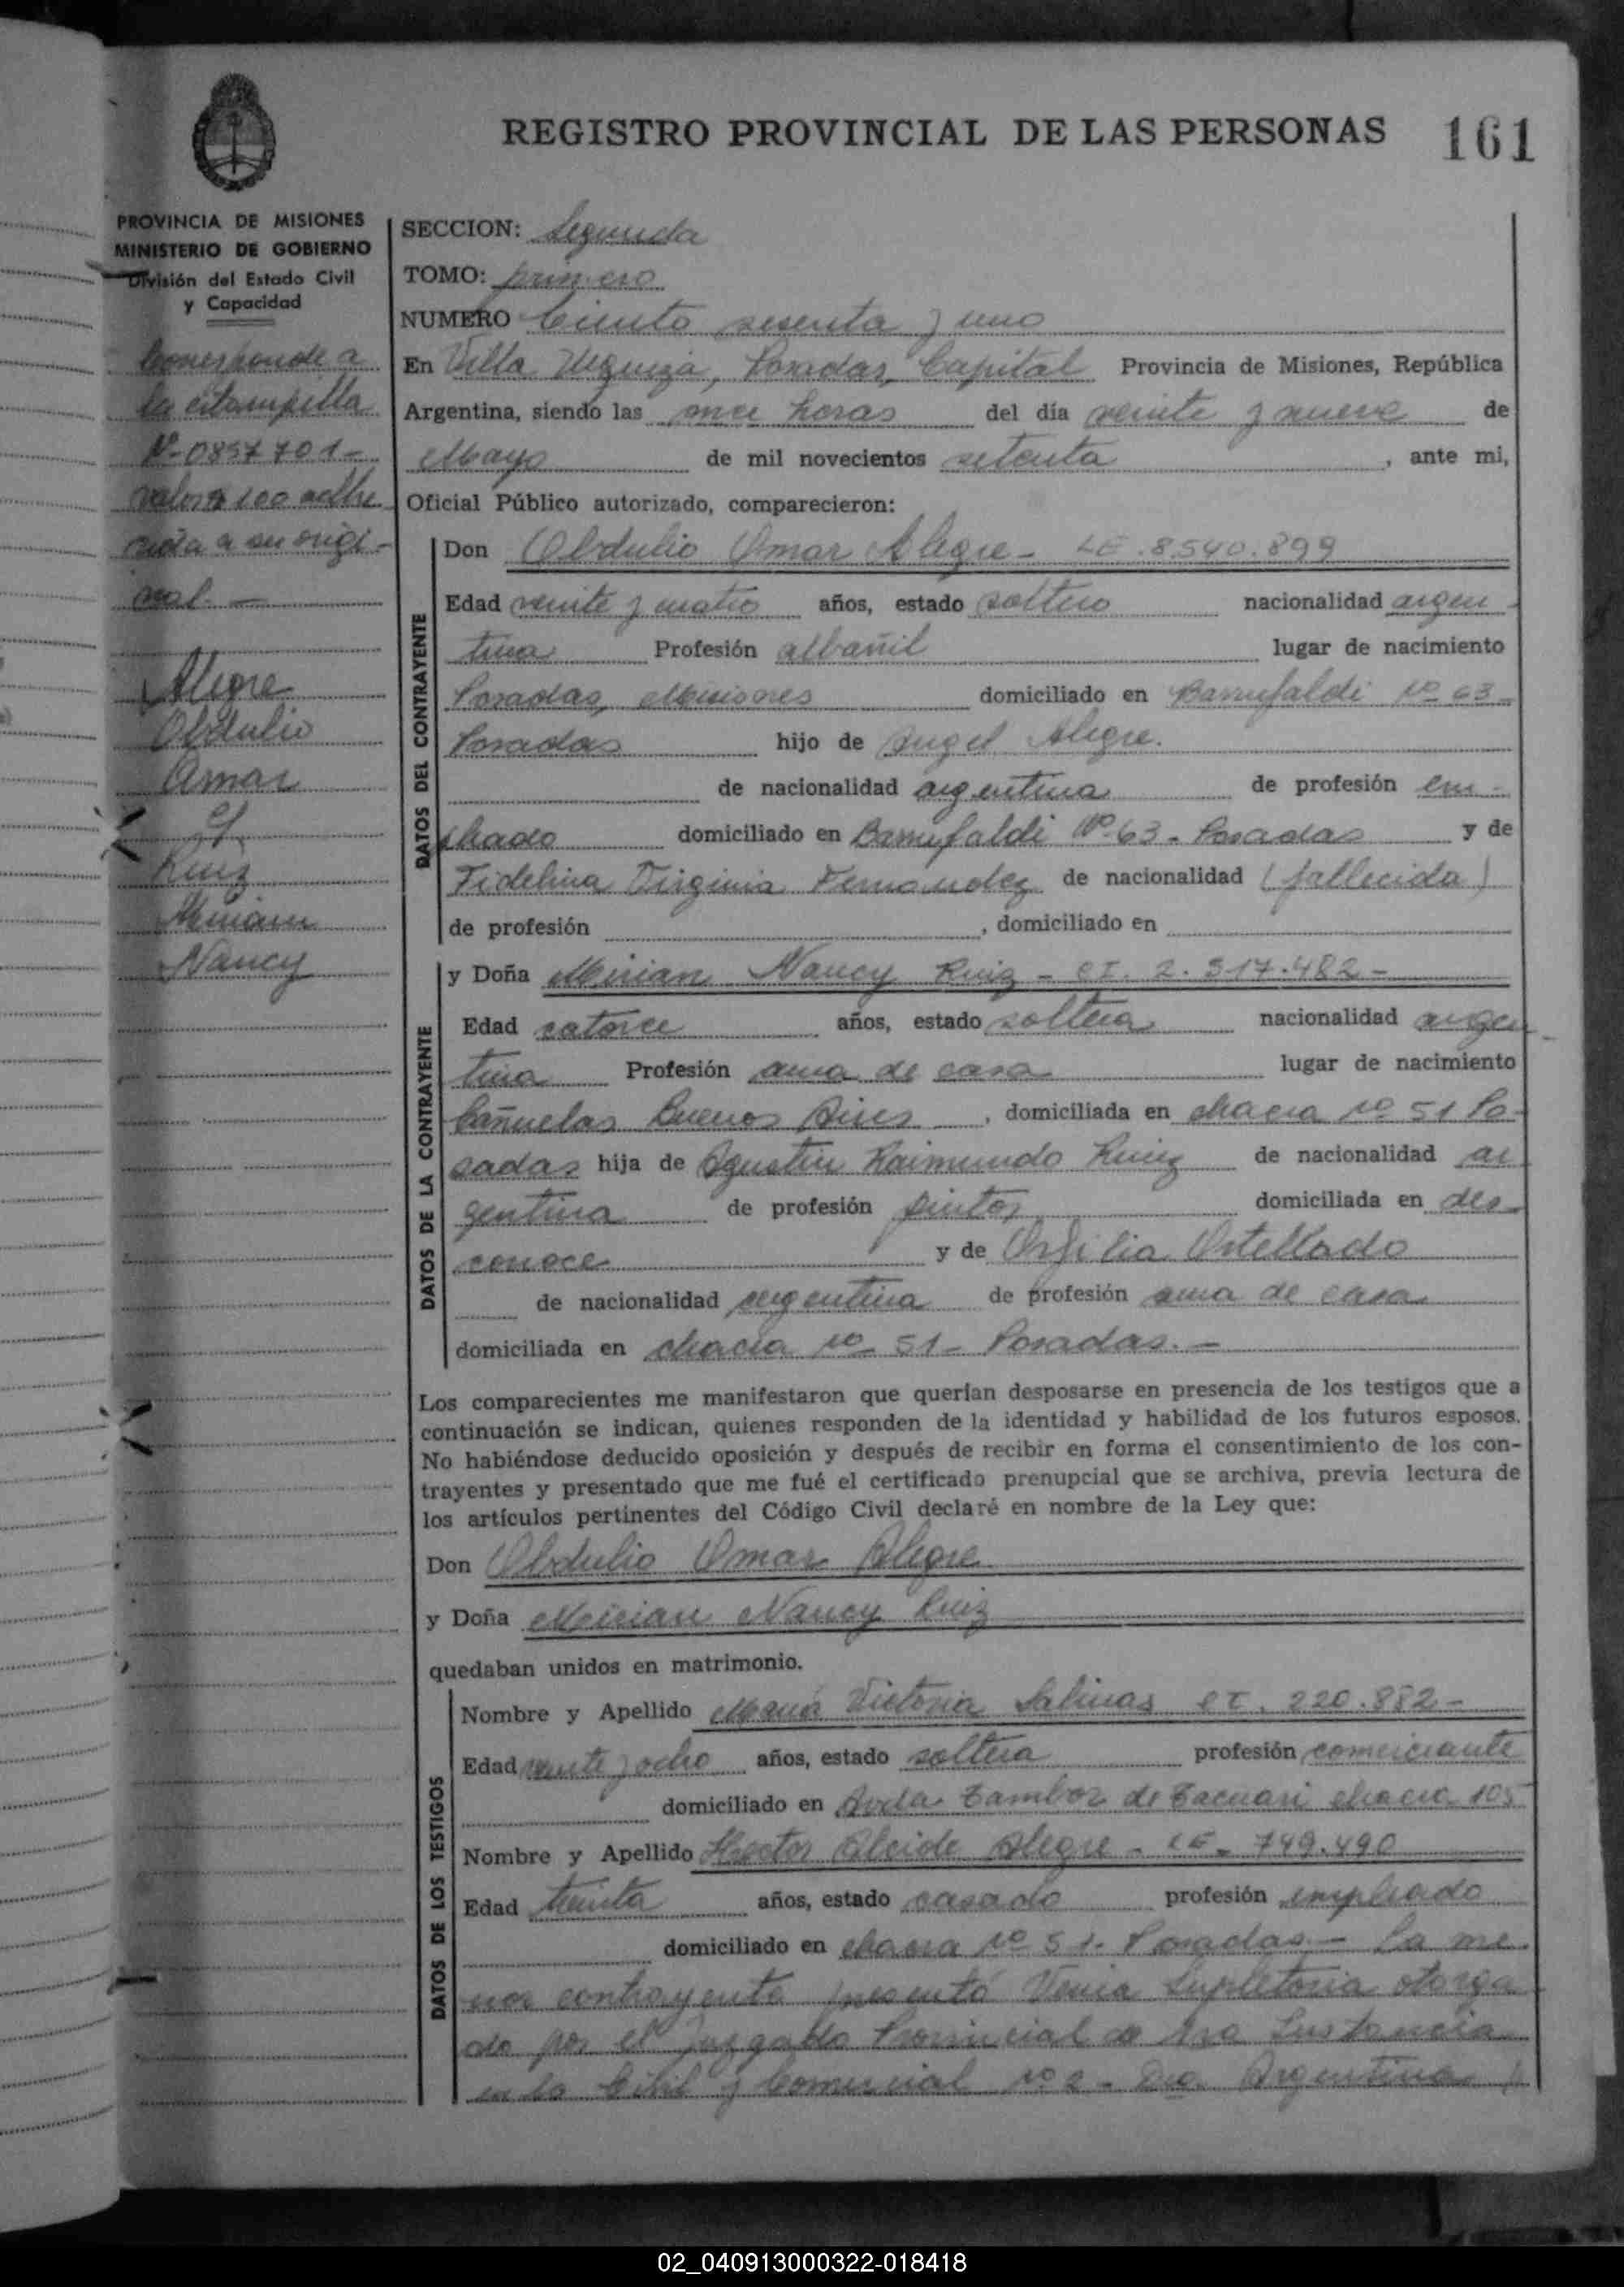 REGISTRO PROVINCIAL DE LAS PERSONAS 161
PROVINCIA DE MISIONES
MINISTERIO DE GOBIERNO
División del Estado Civil
y Capacidad
Corresponde a
la estampilla
Nº 0857701-
valor $ 100 adhe
rida a su origi-
nal.-
Alegre
Obdulio
Omar
y
Ruiz
Miriam
Nancy
SECCION: Segunda
TOMO: primero
NUMERO Ciento sesenta y uno
En Villa Urquiza, Posadas, Capital Provincia de Misiones, República
Argentina, siendo las once horas del día veinte y nueve de
Mayo de mil novecientos setenta, ante mi,
Oficial Público autorizado, comparecieron:
DATOS DEL CONTRAYENTE
Don Obdulio Omar Alegre - LE. 8.540.899
Edad veinte y cuatro años, estado soltero nacionalidad argen
tina Profesión albañil lugar de nacimiento
Posadas, Misiones domiciliado en Barrufaldi Nº 63-
Posadas hijo de Angel Alegre.
de nacionalidad argentina de profesión em-
pleado domiciliado en Barrufaldi Nº 63 - Posadas y de
Fidelina Virginia Fernandez de nacionalidad (fallecida)
de profesión , domiciliado en
DATOS DE LA CONTRAYENTE
y Doña Mirian Nancy Ruiz - CI. 2.317.482-
Edad catorce años, estado soltera nacionalidad argen
tina Profesión ama de casa lugar de nacimiento
Cañuelas Buenos Aires, domiciliada en chacra Nº 51 Po-
sadas hija de Agustin Raimundo Ruiz de nacionalidad ar
gentina de profesión pintor domiciliada en des-
conoce y de Orfilia Ortellado
de nacionalidad argentina de profesión ama de casa
domiciliada en chacra Nº 51- Posadas.-
Los comparecientes me manifestaron que querían desposarse en presencia de los testigos que a
continuación se indican, quienes responden de la identidad y habilidad de los futuros esposos.
No habiéndose deducido oposición y después de recibir en forma el consentimiento de los con-
trayentes y presentado que me fué el certificado prenupcial que se archiva, previa lectura de
los artículos pertinentes del Código Civil declaré en nombre de la Ley que:
Don Obdulio Omar Alegre
y Doña Mirian Nancy Ruiz
quedaban unidos en matrimonio.
DATOS DE LOS TESTIGOS
Nombre y Apellido Maria Victoria Salinas CI. 220.882-
Edad veinte y ocho años, estado soltera profesión comerciante
domiciliado en Avda. Tambor de Tacuari chacra 105
Nombre y Apellido Hector Alcide Alegre - LE- 749.490
Edad treinta años, estado casado profesión empleado
domiciliado en chacra Nº 51- Posadas.- La me
nor contrayente presentó Venia Supletoria otorga
do por el Juzgado Provincial de 1ra Instancia
en lo Civil y Comercial Nº 2 - Dra. Argentina
02_040913000322-018418